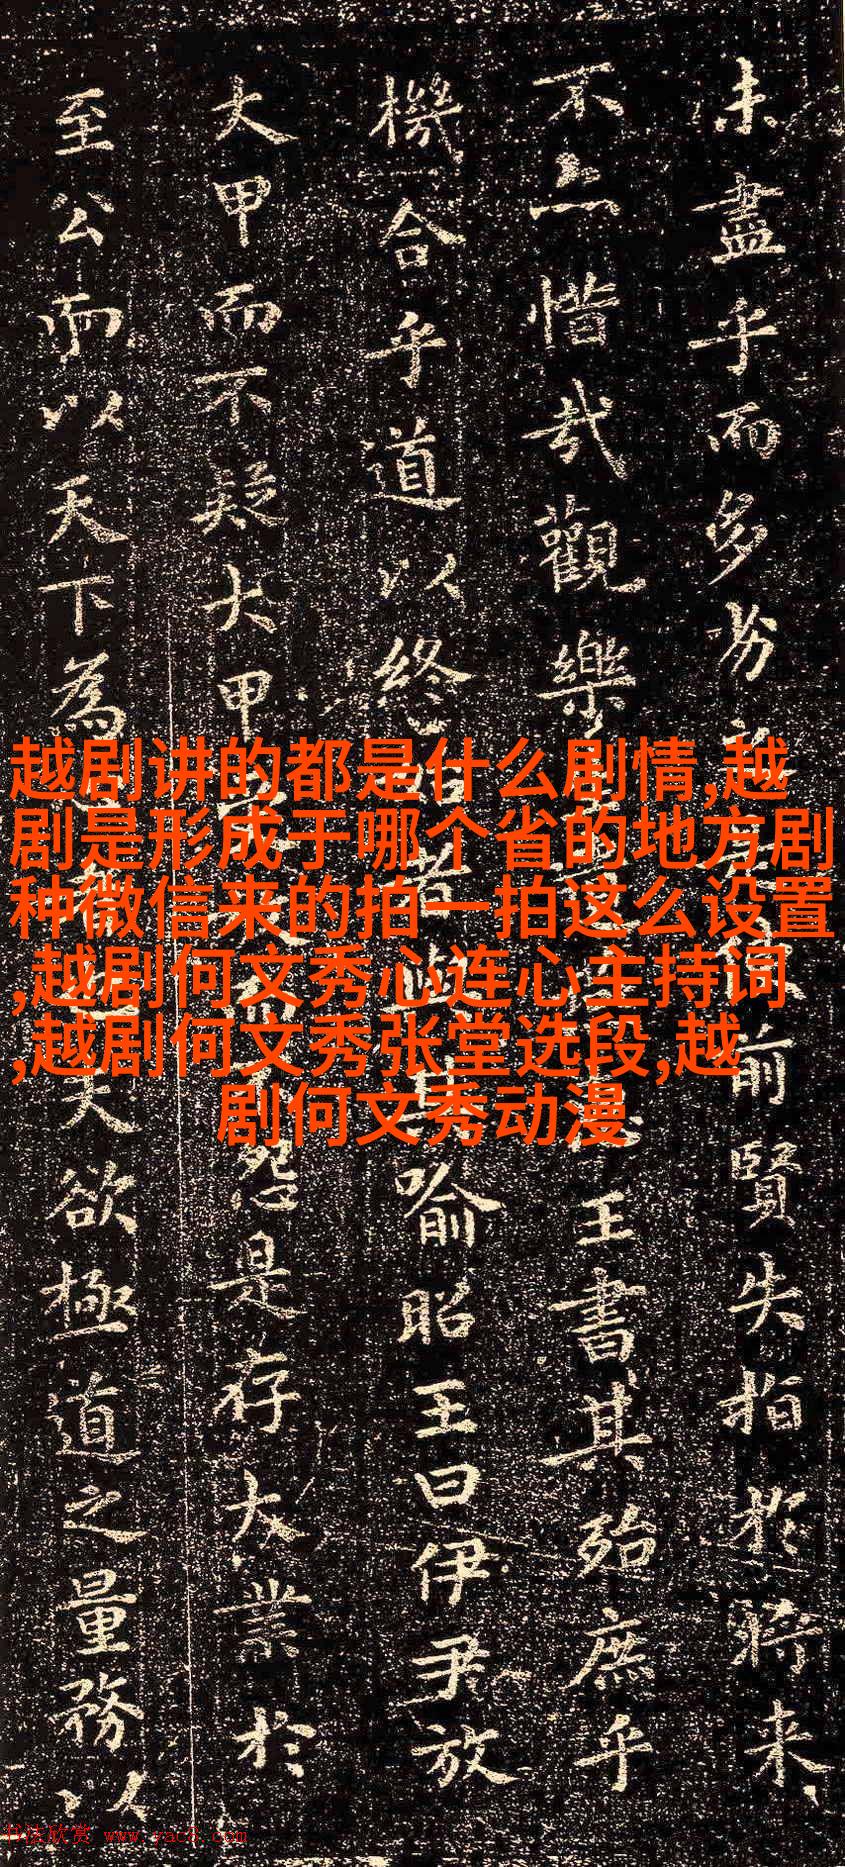 未盡乎而多劣使前賢失指於將来
不亦惜哉觀樂王書其殆庶乎
機合乎道以終始者與其喻昭王曰伊尹放
大甲而不疑大甲怨是存大業於
至公而以天下為夫欲極道之量務以
越剧讲的都是什么剧情,越
剧是形成于哪个省的地方剧
种微信来的拍一拍这么设置
,越剧何文秀心连心主持词
,越剧何文秀张堂选段,越
剧何文秀动漫
书法欣赏 www.yac8.com